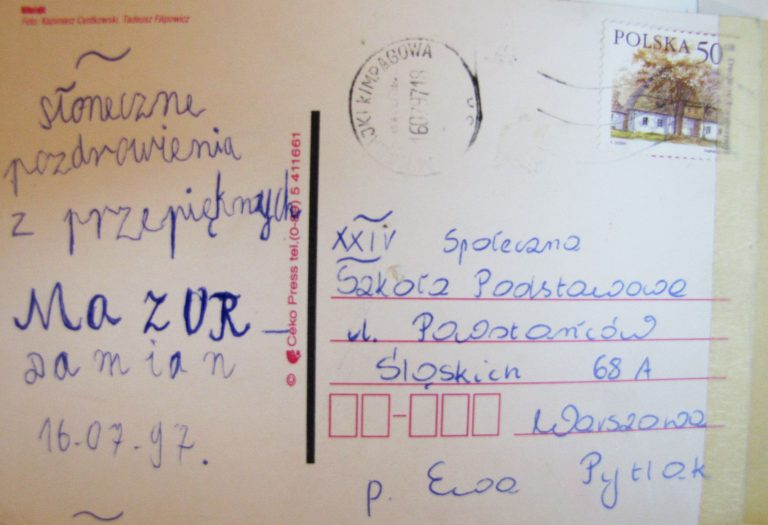 Foto: Kazimierz Centkowski, Tadeusz Filipowicz
słoneczne
pozdrowienia
z przepięknych
MaZUR
Damian
16.07.97.
© Ceko Press tel.(0-89) 5 411661
KI KIMPAGOWA
16079718
POLSKA 50
XXIV Społeczna
Szkoła Podstawowa
ul. Powstańców
Śląskich 68 A
Warszawa
p. Ewa Pytlak